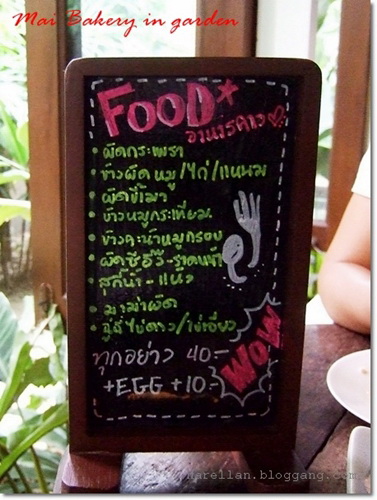 Mai Bakery in garden
FOOD*
อาหารคาว
• ผัดกระเพรา
• ข้าวผัด หมู/ไก่/แหนม
• ผัดขี้เมา
• ข้าวหมูกระเทียม
• ข้าวคะน้าหมูกรอบ
• ผัดซีอิ๊ว-ราดหน้า
• สุกี้น้ำ-แห้ง
• มาม่าผัด
• ไข่ดาว/ไข่เจียว
ทุกอย่าง 40.-
+EGG +10.-
WOW
marellan.bloggang.com